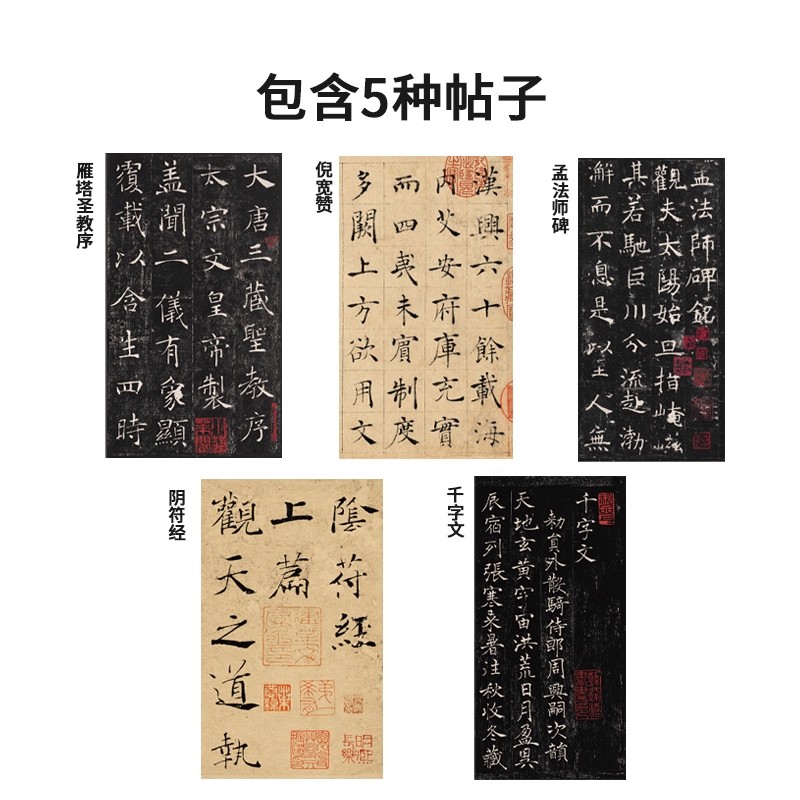 包含5种帖子
雁塔圣教序
大唐三藏聖教序
太宗文皇帝製
盖聞二儀有象顯
覆載以含生四時
倪宽赞
漢興六十餘載海
内艾安府庫充實
而四夷未賓制度
多闕上方欲用文
孟法师碑
孟法師碑銘
觀夫太陽始旦指崦嵫
其若馳巨川分流赴渤
澥而不息是以至人無
阴符经
陰符經
上篇
觀天之道執
千字文
千字文
勑員外散騎侍郎周興嗣次韻
天地玄黄宇宙洪荒日月盈昃
辰宿列張寒来暑往秋收冬藏